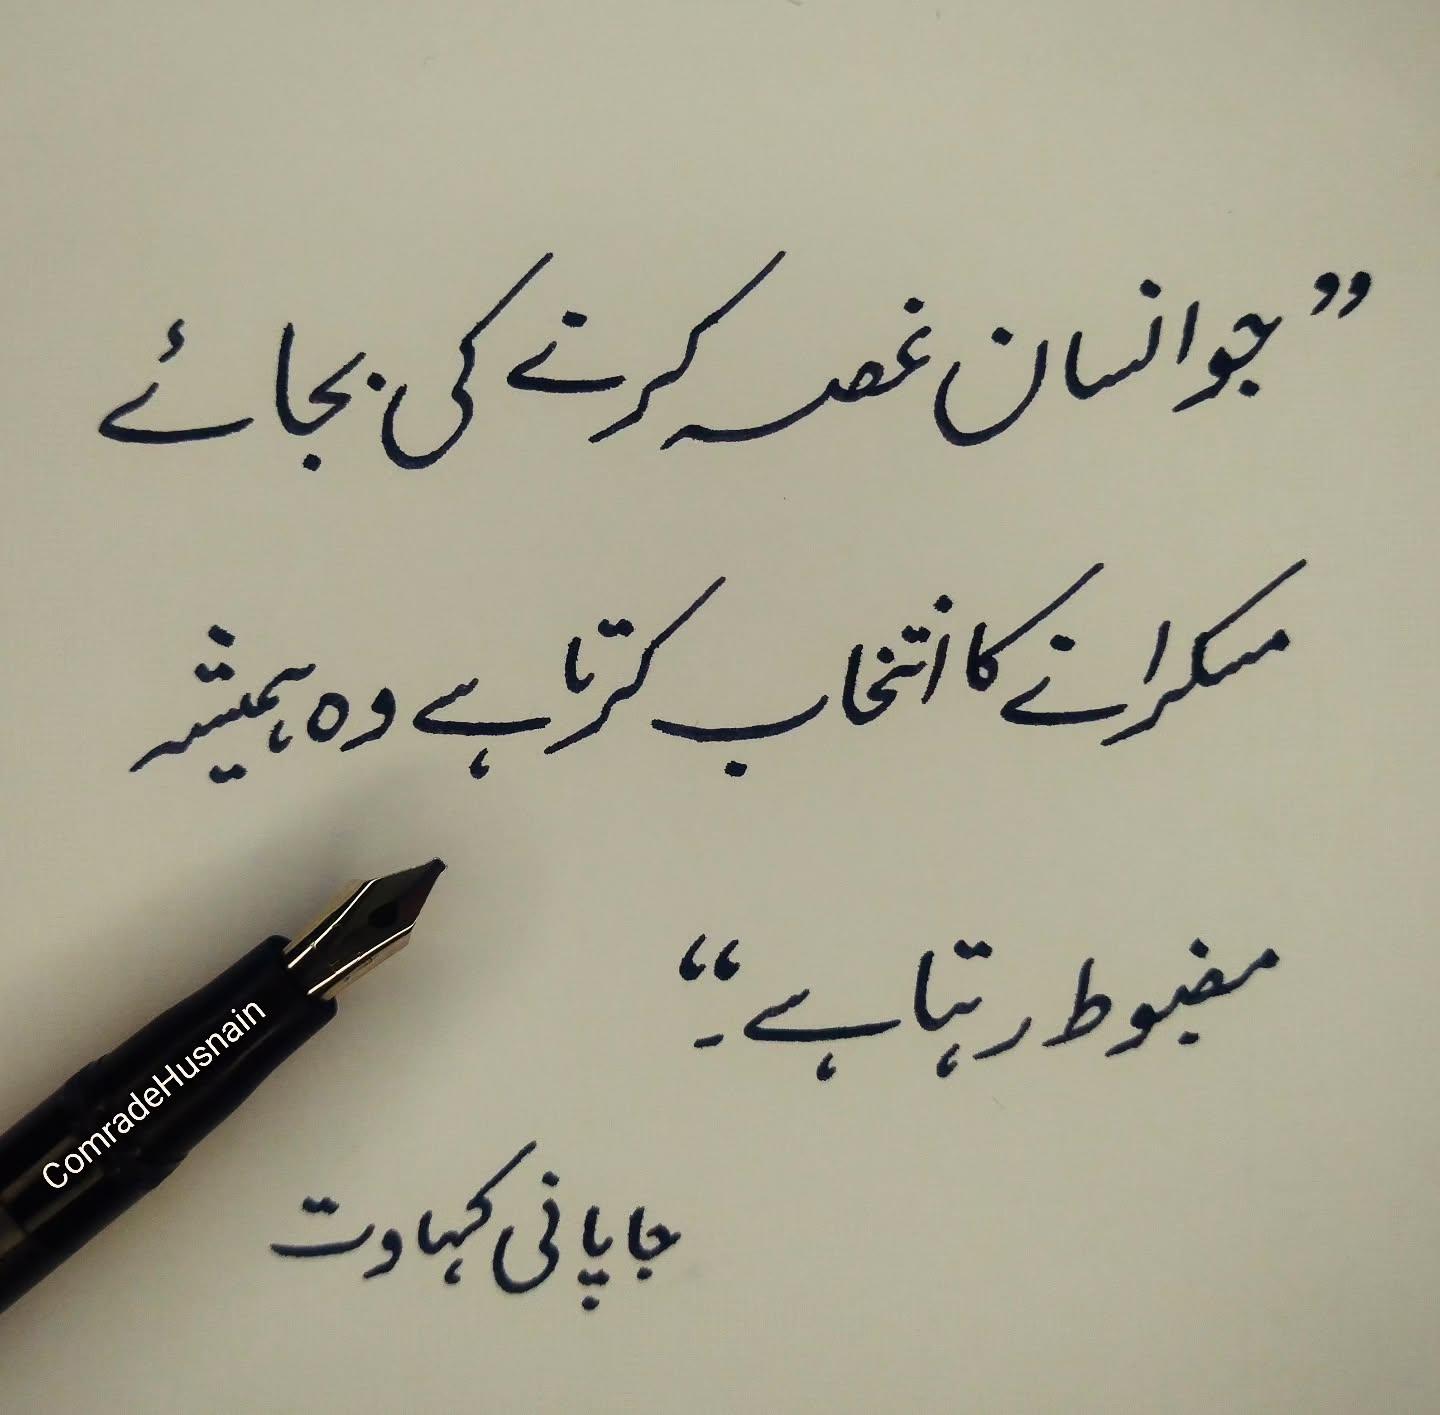 ”جو انسان غصہ کرنے کی بجائے
مسکرانے کا انتخاب کرتا ہے وہ ہمیشہ
مضبوط رہتا ہے۔“
جاپانی کہاوت
ComradeHusnain